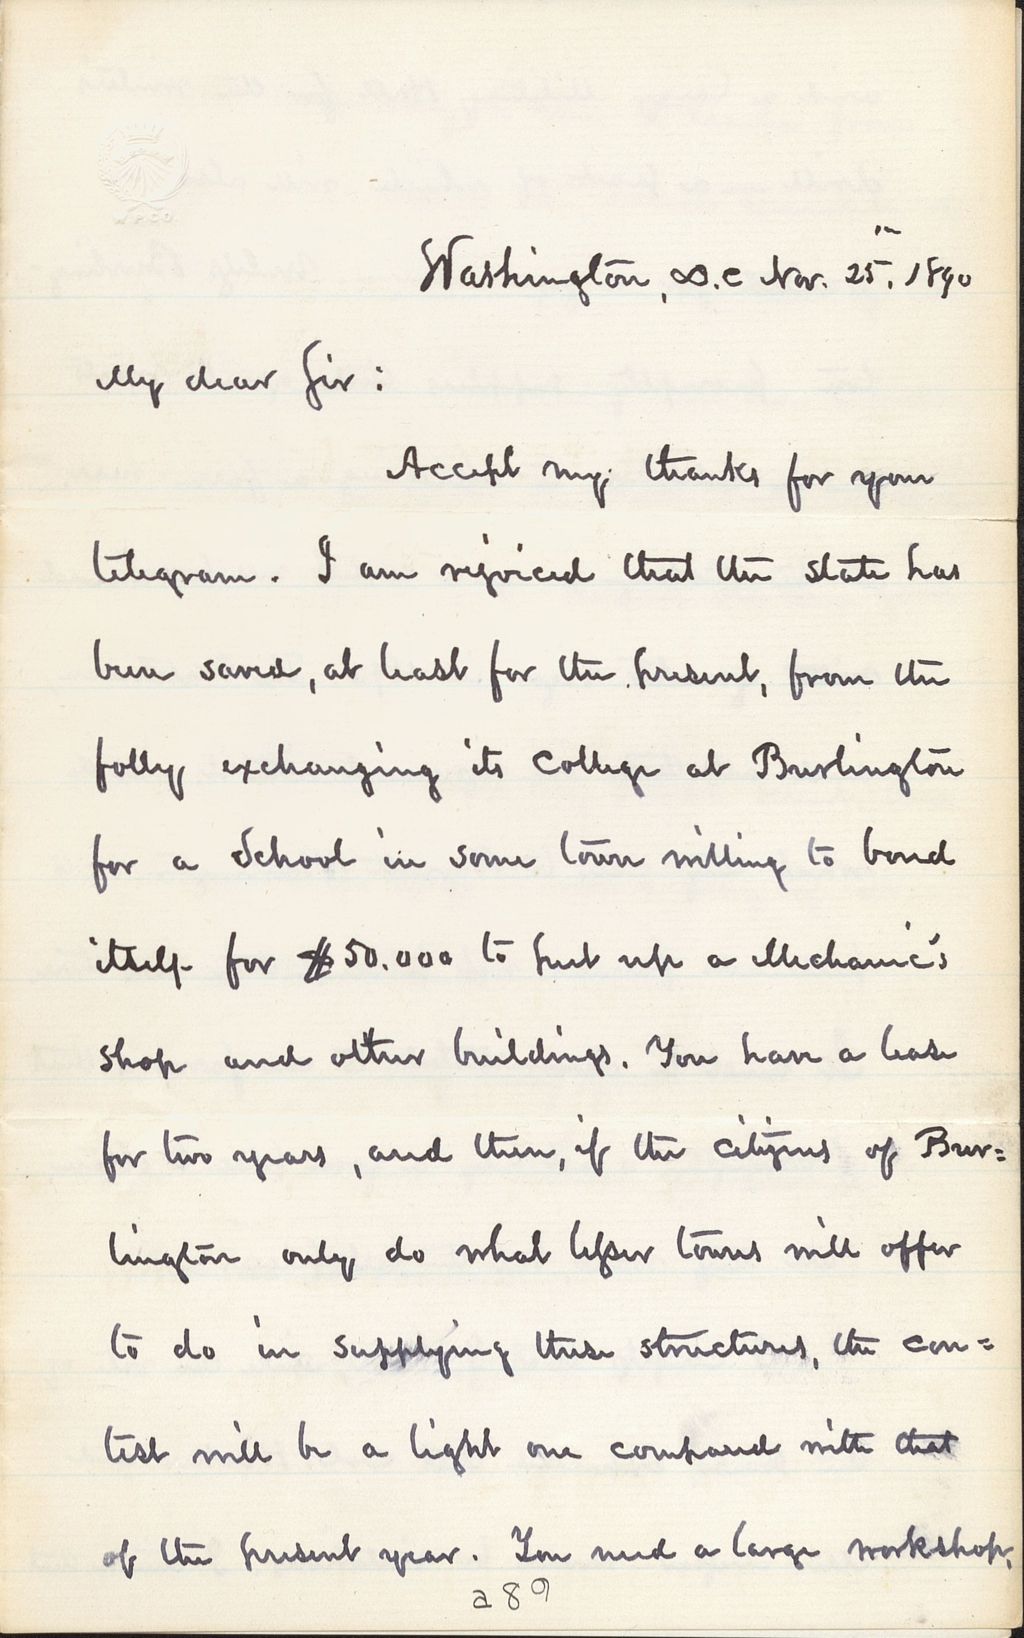 W.P.CO.
Washington, D.C Nov. 25th, 1890
My dear Sir:
Accept my thanks for your
telegram. I am rejoiced that the state has
been saved, at least for the present, from the
folly exchanging its college at Burlington
for a School in some town willing to bond
itself for $50.000 to put up a Mechanic's
shop and other buildings. You have a lease
for two years, and then, if the citizens of Bur=
lington only do what lesser towns will offer
to do in supplying these structures, the con=
test will be a light one compared with that
of the present year. You need a large workshop,
a89